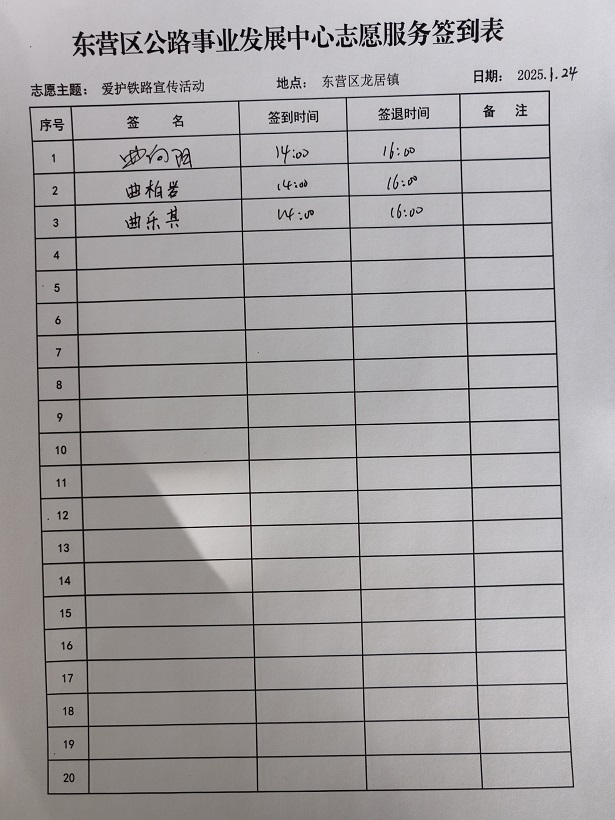 东营区公路事业发展中心志愿服务签到表
志愿主题： 爱护铁路宣传活动 地点： 东营区龙居镇 日期： 2025.1.24
序号 签 名 签到时间 签退时间 备 注
1 曲向阳 14:00 16:00
2 曲柏岩 14:00 16:00
3 曲乐其 14:00 16:00
4
5
6
7
8
9
10
11
12
13
14
15
16
17
18
19
20